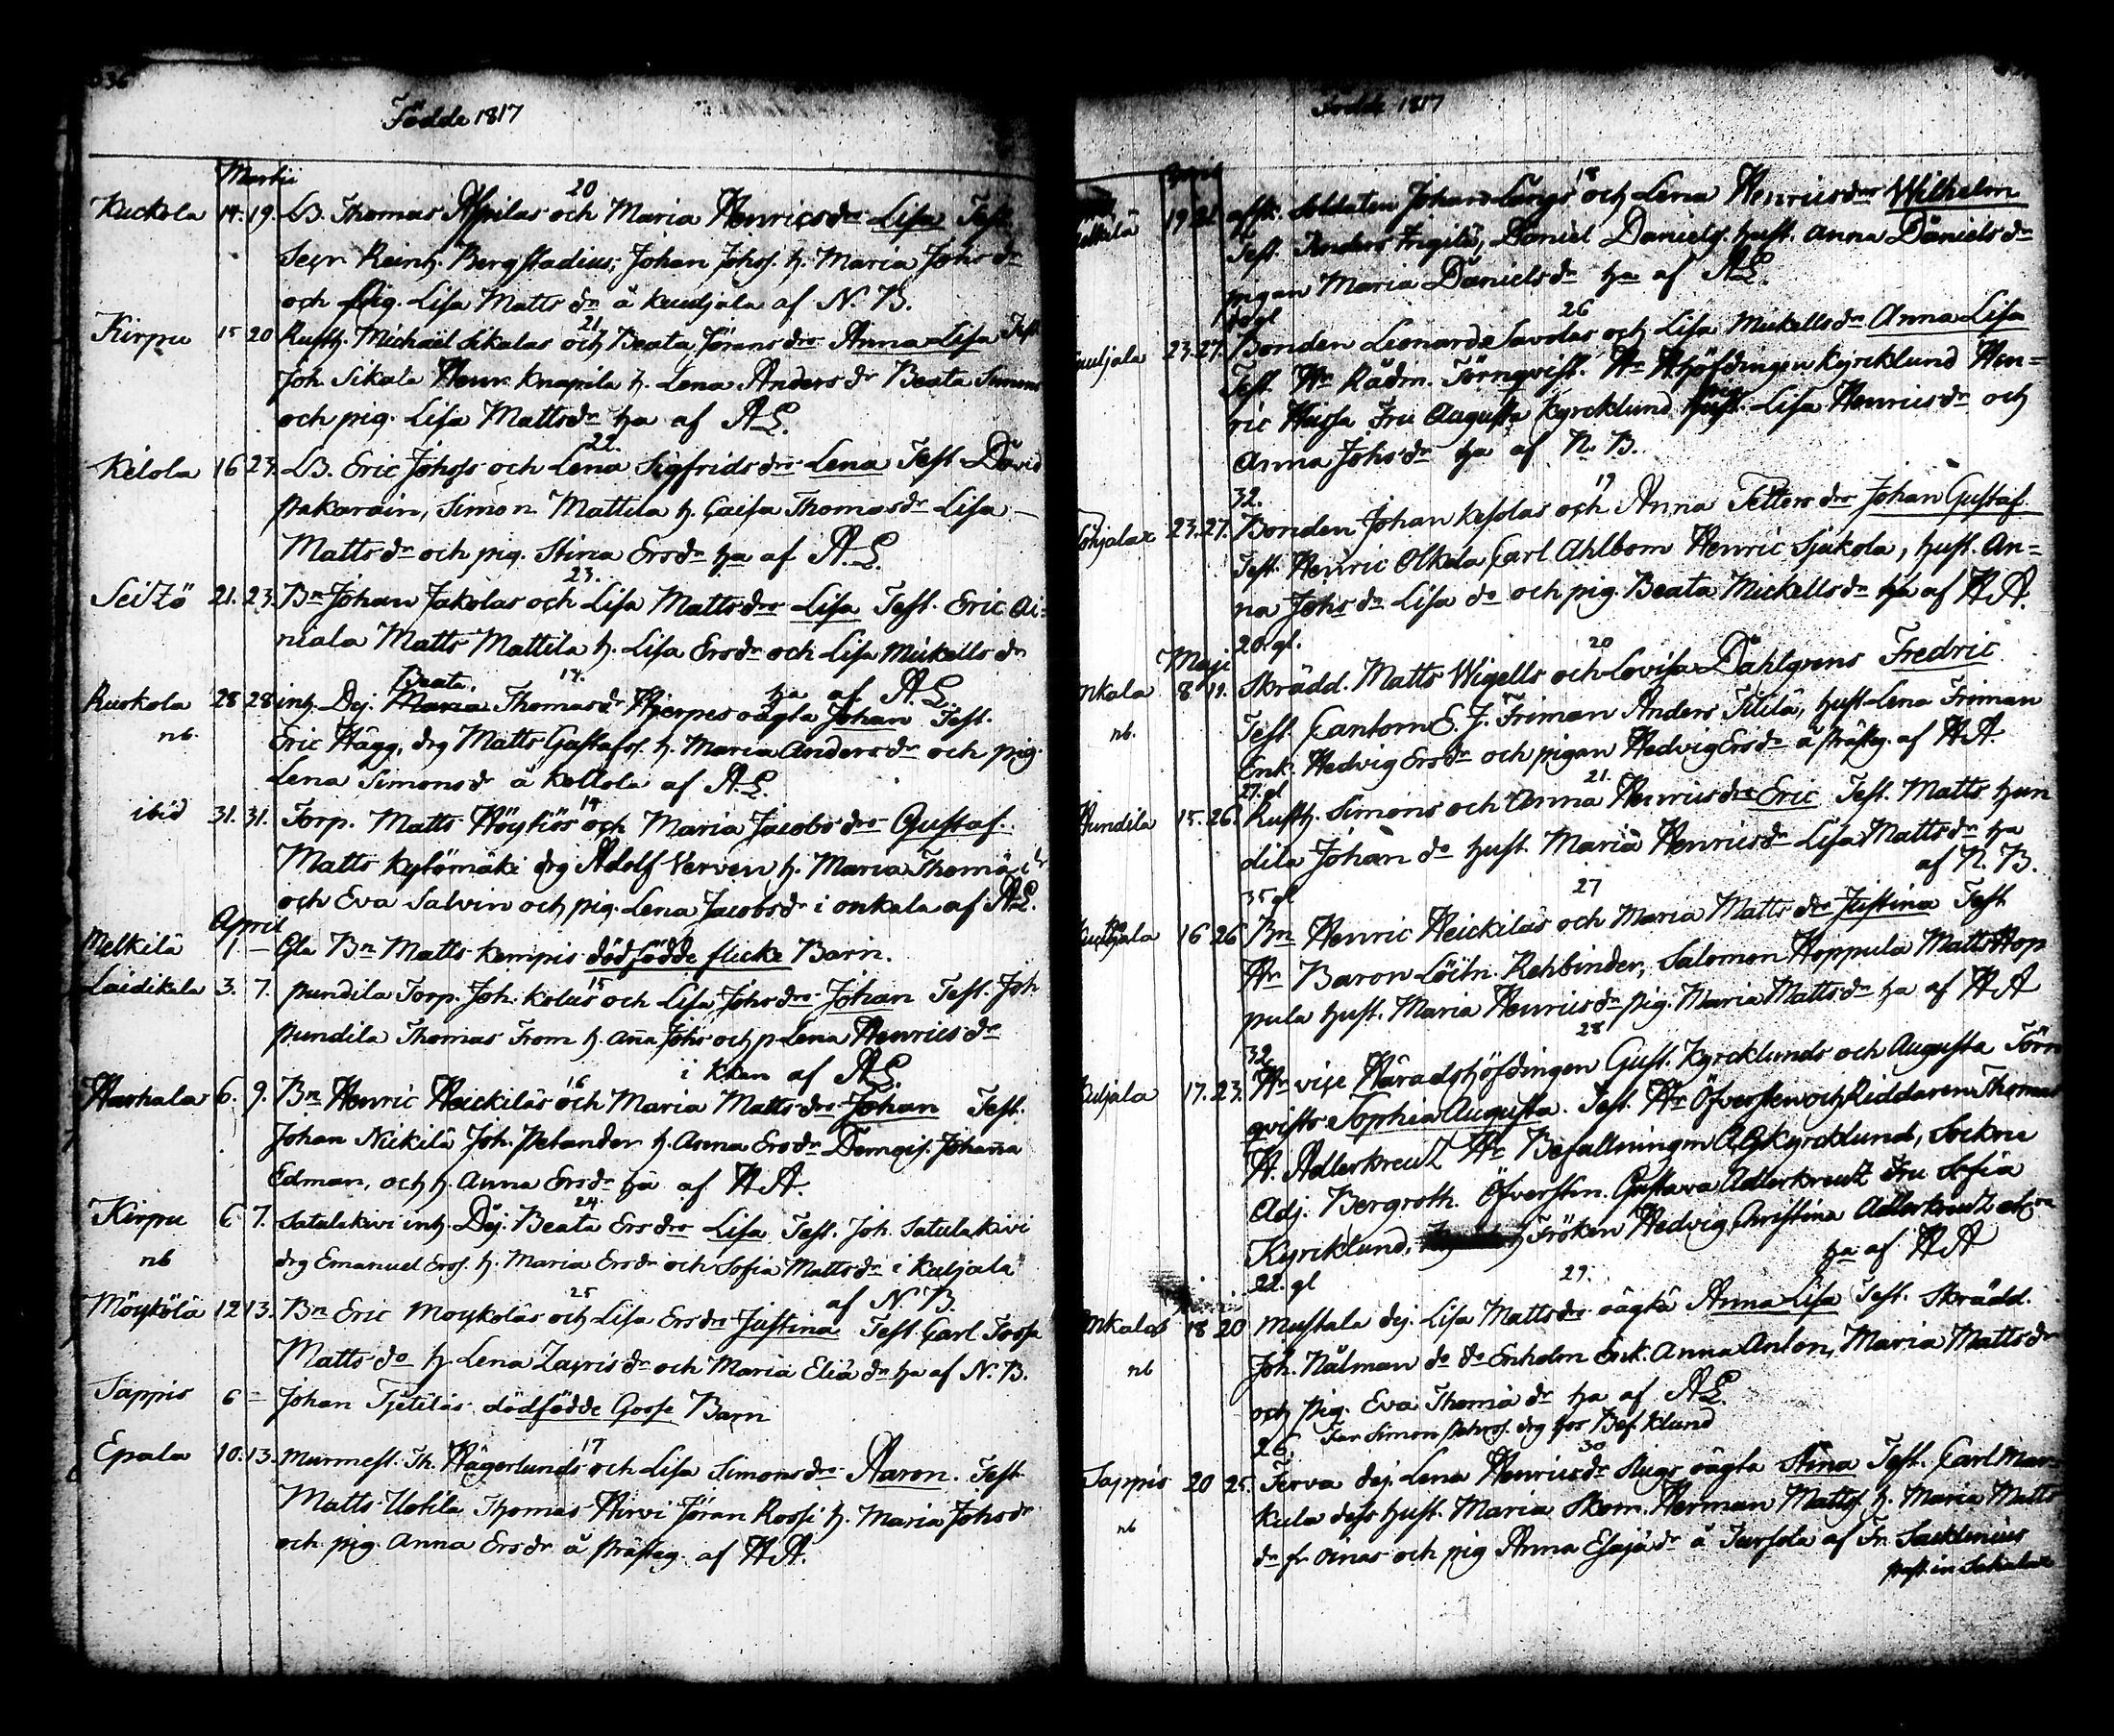 336
Födde 1817
Martii
20
Kuckola 14. 19. LB. Thomas Äspilas och Maria Henricsdrs Lisa Test.
Secr. Reinh. Bergstadius, Johan Johss. h. Maria Johsdr
och pig. Lisa Mattsdr å kuudjala af N. B.
21
Kirpu 15 20 Rusth. Michaël Sikalas och Beata Jöransdrs Anna Lisa Test
Joh. Sikala Henr. Knapila h. Lena Andersdr Beata Simons
och pig. Lisa Mattsdr ha af A. L.
22.
Kelola 16 23. LB. Eric Johss och Lena Sigfridsdrs Lena Test David
pakarain, Simon Mattila h. Caisa Thomasdr Lisa
Mattsdr och pig. Stina Ersdr ha af A. L.
23.
Seizö 21. 23. Bn Johan Jakolas och Lisa Mattsdrs Lisa Test. Eric Ai-
niala Matts Mattila h. Lisa Ersdr och Lisa Mickellsdr
ha af A. L.
Beata. 13.
Ruskola 28 28 inh. Dej. Maria Thomasdr Hierpes oägta Johan Test.
nb. Eric Hägg, drg Matts Gustafss. h. Maria Andersdr och pig
Lena Simonsdr å Kollola af A. L.
14
ibid 31. 31. Torp. Matts Höykiös och Maria Jacobsdrs Gustaf.
Matts Kylömäki drg Adolf Verven h. Maria Thomædr
och Eva Salvin och pig. Lena Jacobsdr i onkala af A. L.
April
Melkilä 1. — Gla Bn Matts Kempis dödfödde flicke Barn.
15
Laidikala 3. 7. pundila Torp. Joh. Kolas och Lisa Johsdrs Johan Test. Joh
pundila Thomas From h. Anna Johs och p Lena Henricsdr
i kken af A. L.
16
Harhala 6. 9. Bn Henric Heickiläs och Maria Mattsdrs Johan Test.
Johan Nickilä Joh. Pelander h. Anna Ersdr Demois. Johanna
Edman, och h. Anna Ersdr ha af H A.
24.
Kirpu 6. 7. Satulakivi inh. Dej. Beata Ersdrs Lisa Test. Joh. Satulakivi
nb drg Emanuel Erss. h. Maria Ersdr och Sofia Mattsdr i kuljala
af N. B.
25
Möykölä 12 13. Bn Eric Moykoläs och Lisa Ersdrs Justina Test Carl
Matts do h. Lena Zacrisdr och Maria Eliædr ha af N. B.
Sappis 6 = Johan Tjetiläs dödfödde Gosse Barn
17
Epala 10. 13. murmest. Th. Hägerlunds och Lisa Simonsdrs Aaron. Test.
Matts Uotila Thomas Hirvi Jöran Rossi h. Maria Johsdr
och pig. Anna Ersdr å prästeg. af H A.
Födde 1817
April
18
19 21 afsk. Soldaten Johan Längs och Lena Henricsdrs Wilhelm
Test. Anders Frigilä, Daniel Daniels. hust. Anna Danielsdr
pigan Maria Danielsdr ha af A L.
26
23. 27. Bonden Leonard Savolas och Lisa Mickellsdrs Anna Lisa
Test. Hr Rådm. Törnqvist. Hr Häfdingen Kyrcklund Hen-
ric Hussa Fru Augusta Kyrcklund Lisa Henricsdr och
Anna Johsdr ha af N. B.
32. 19
23. 27. Bonden Johan Kesolas och Anna Pettersdrs Johan Gustaf
Test. Henric Olkala Carl Ahlbom Henric Sjukola, hust. An-
na Johsdr Lisa do och pig. Beata Mickellsdr ha af H A.
20. gl.
Maji 20
nkala 8 11. Skrädd. Matts Wigells och Lovisa Dahlgrens Fredric
nb. Test. Cantorn E. J. Friman Anders Titilä, hust Lena Friman
Enk. Hedvig Ersdr och pigan Hedvig Ersdr å prästeg. af H A.
27. gl 21.
Hundila 15. 26. Rusth. Simons och Anna Henricsdrs Eric Test. Matts hun
dila Johan do hust. Maria Henricsdr Lisa Mattsdr ha
af N. B.
35 gl 27
16 26 Bn Henric Heickiläs och Maria Mattsdrs Justina Test
Hr Baron Löitn. Rehbinder, Salomon Hoppula Matts Hop
pula hust. Maria Henricsdr pig. Maria Mattsdr ha af H A
32 28
kuljala 17. 23. Hr vice Häradshöfdingen Gust. Kyrcklunds och Augusta Törn
qvists Sophia Augusta. Test. Hr Öfversten och Riddaren Thomas
H. Adlerkreutz Hr Befallningm Kyrcklund, Sockne
Adj. Bergroth. Öfverstin. Gustava Adlerkreutz Fru Sofia
Kyrcklund, Fröken Hedvig Christina Adlerkreutz
ha af H A
22. gl 29.
nkala 18 20 mustala dej. Lisa Mattsdrs oägta Anna Lisa Test. Skrädd.
nb Joh. Nålman do do Enholm Enk. Anna Anton, Maria Mattsdr
och pig. Eva Thomædr ha af A L.
26. Far Simon drg hos Bef. Klund
30
Sappis 20 25. Terva dej. Lena Henricsdr Slugs oägta Stina Test. Carl Mar-
nb kula dess hust. Maria Skom. Herman Matts. h. Maria Matts
dr fr Oinas och pig Anna Esajædr å Tursola af Fr. Sacklinius
past. in